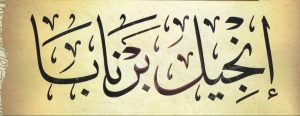 إنجيل بَرنابا